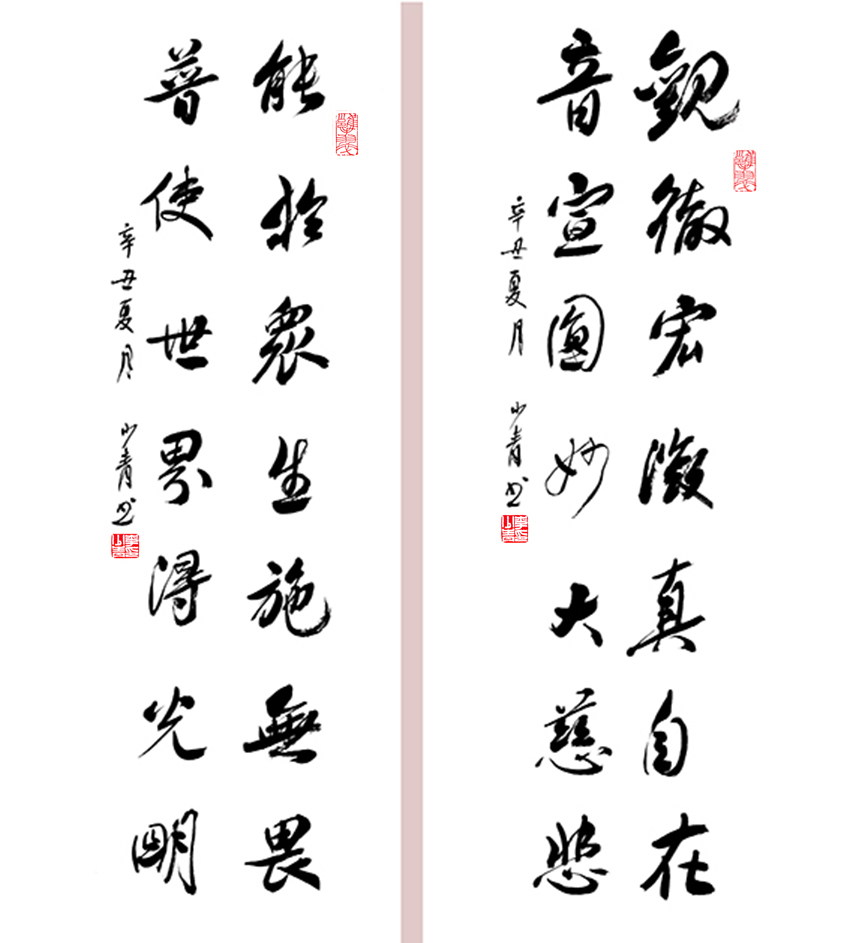 觀徹宏澂真自在
音宣圓妙大慈悲
辛丑夏月 少青书
能於眾生施無畏
普使世界得光明
辛丑夏月 少青书